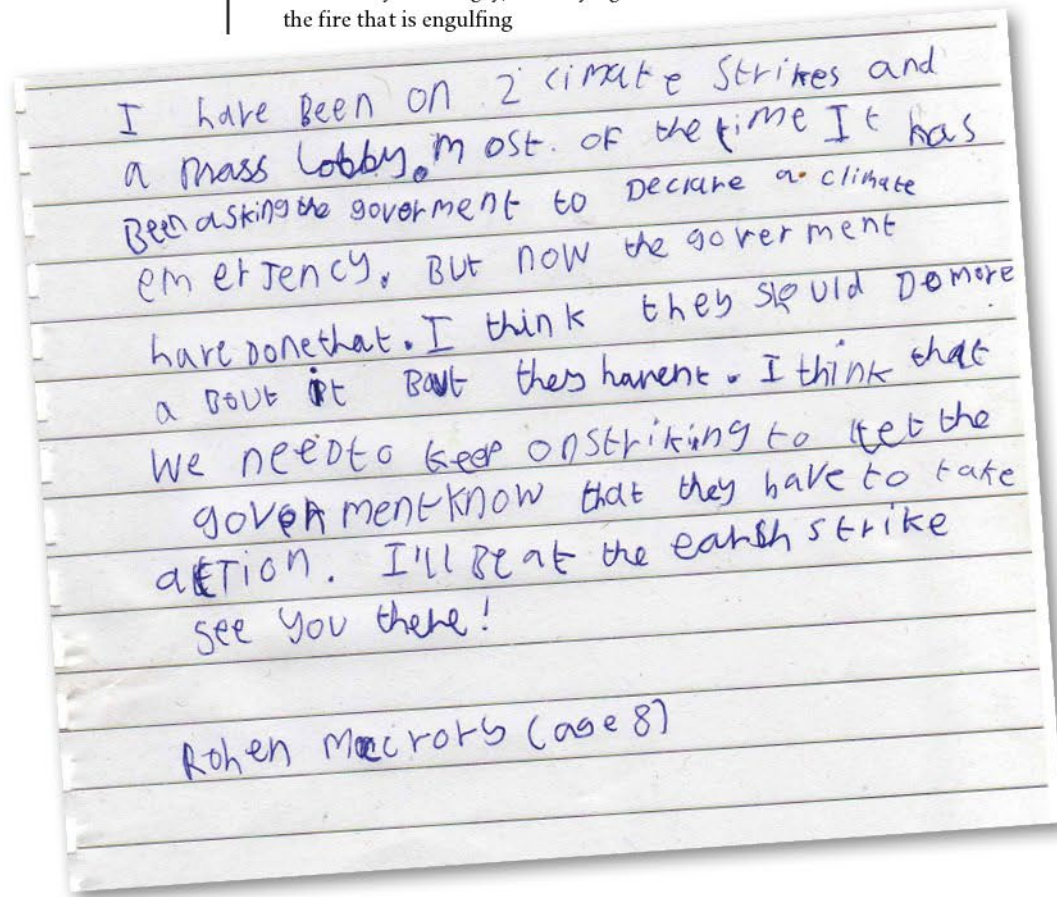 the fire that is engulfing
I have Been on 2 cimate Strikes and
a mass Lobby. most. of the time It has
Been asking the goverment to Declare a climate
emerJency. But now the goverment
have Done that. I think they should Do more
a Bout it But they havent. I think that
We neeD to keep on striking to let the
government know that they have to take
acTion. I'll Be at the earth strike
see you there!
Rohen Macrory (age 8)